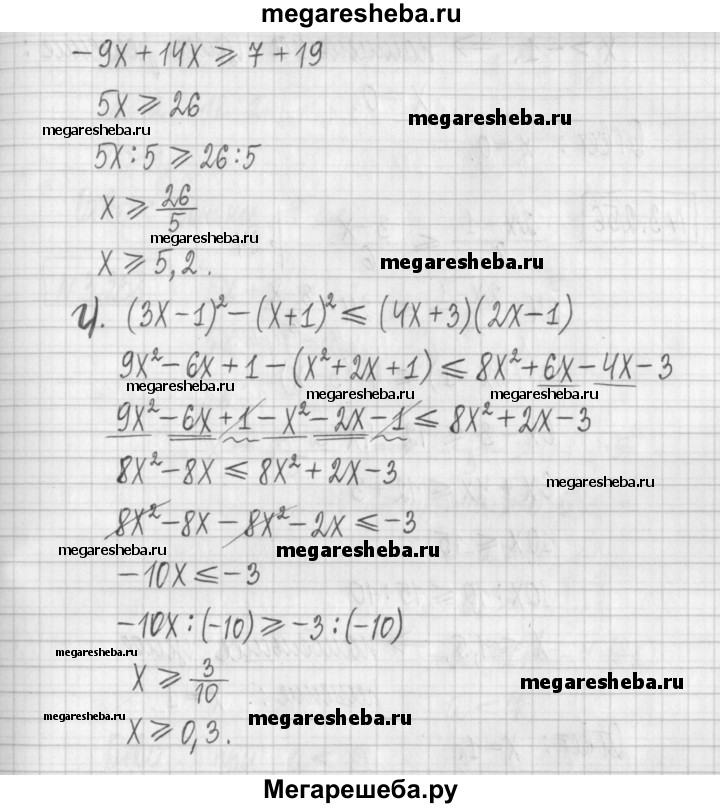 megaresheba.ru
-9x+14x ≥ 7+19
5x ≥ 26
megaresheba.ru
megaresheba.ru
5x:5 ≥ 26:5
x ≥ 26/5
megaresheba.ru
x ≥ 5,2.
megaresheba.ru
г). (3x-1)²-(x+1)² ≤ (4x+3)(2x-1)
9x²-6x+1-(x²+2x+1) ≤ 8x²+6x-4x-3
megaresheba.ru megaresheba.ru megaresheba.ru
9x²-6x+1-x²-2x-1 ≤ 8x²+2x-3
8x²-8x ≤ 8x²+2x-3
megaresheba.ru
8x²-8x-8x²-2x ≤ -3
megaresheba.ru megaresheba.ru megaresheba.ru
-10x ≤ -3
-10x:(-10) ≥ -3:(-10)
megaresheba.ru
x ≥ 3/10
megaresheba.ru
megaresheba.ru megaresheba.ru
x ≥ 0,3.
Мегарешеба.ру